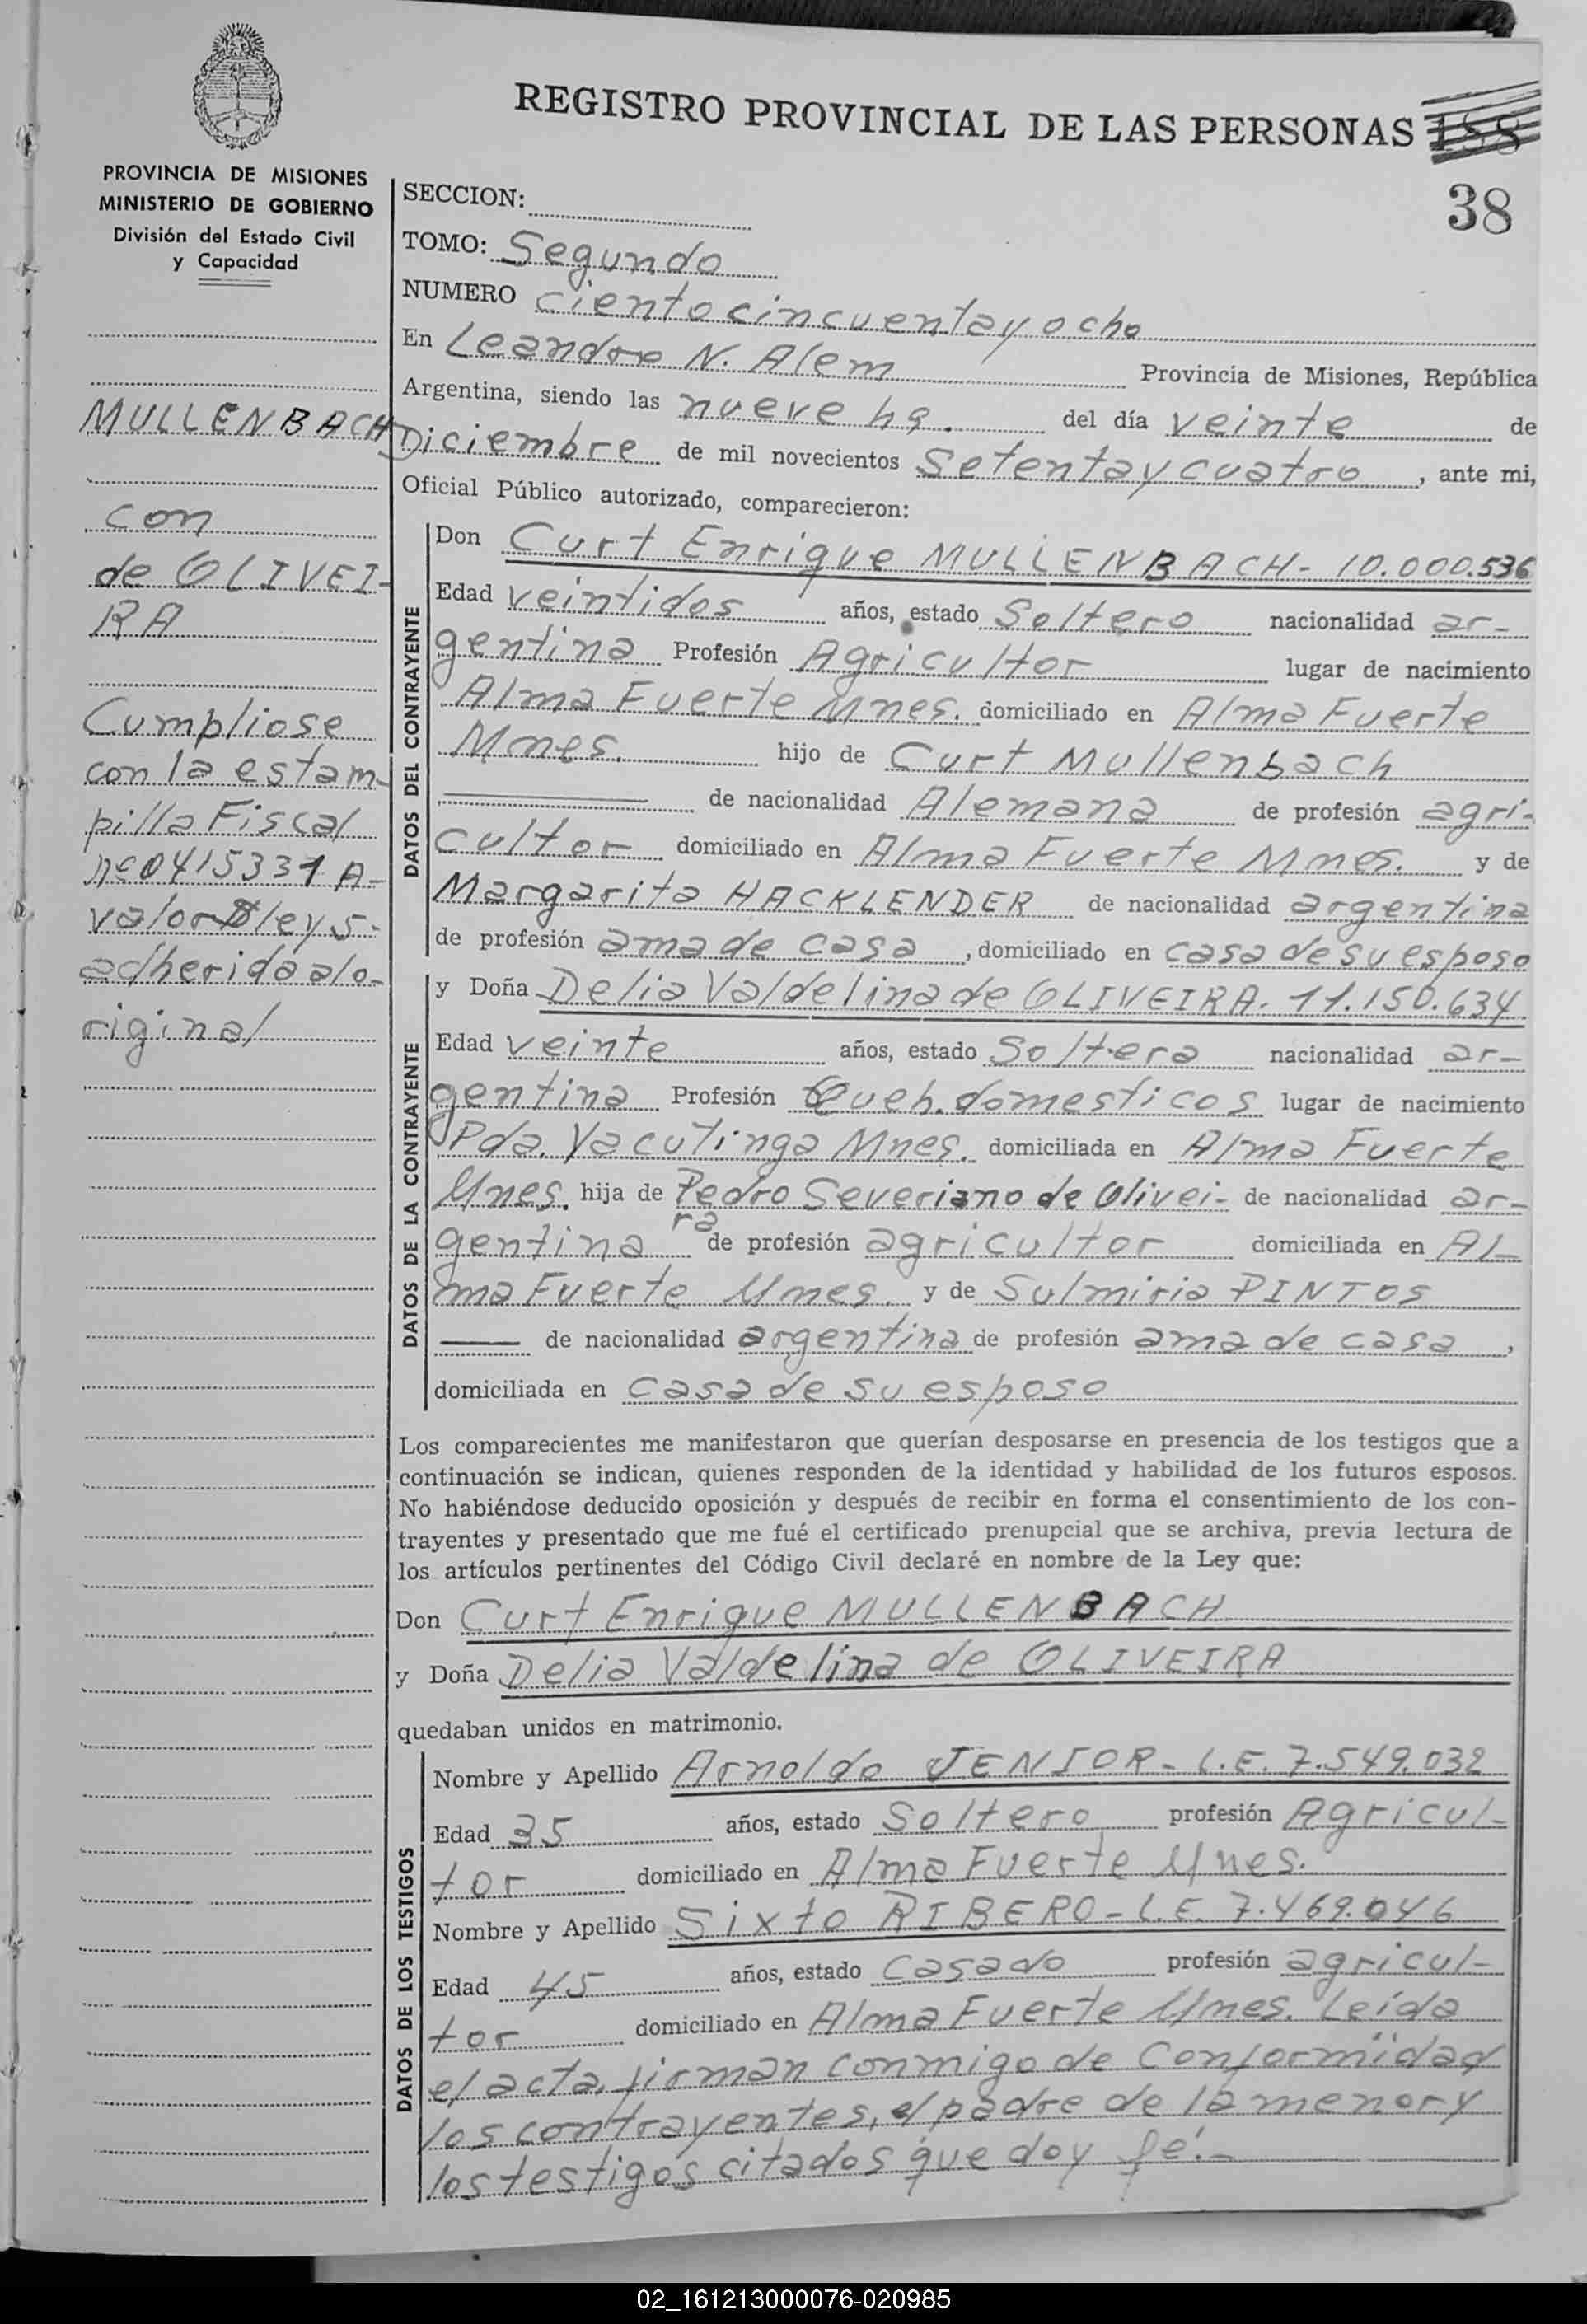 REGISTRO PROVINCIAL DE LAS PERSONAS 158
38
PROVINCIA DE MISIONES
MINISTERIO DE GOBIERNO
División del Estado Civil
y Capacidad
MULLENBACH
con
de OLIVEI-
RA
Cumpliose
con la estam-
pilla Fiscal
nº 0415331 A-
valor $ ley 5-
adherida al o-
riginal
SECCION:
TOMO: Segundo
NUMERO ciento cincuenta y ocho
En Leandro N. Alem Provincia de Misiones, República
Argentina, siendo las nueve hs. del día veinte de
Diciembre de mil novecientos Setenta y cuatro, ante mi,
Oficial Público autorizado, comparecieron:
DATOS DEL CONTRAYENTE
Don Curt Enrique MULLENBACH- 10.000.536
Edad veintidos años, estado Soltero nacionalidad ar-
gentina Profesión Agricultor lugar de nacimiento
Alma Fuerte Mnes. domiciliado en Alma Fuerte
Mnes. hijo de Curt Mullenbach
de nacionalidad Alemana de profesión agri-
cultor domiciliado en Alma Fuerte Mnes. y de
Margarita HACKLENDER de nacionalidad argentina
de profesión ama de casa, domiciliado en casa de su esposo
DATOS DE LA CONTRAYENTE
y Doña Delia Valdelina de OLIVEIRA. 11.150.634
Edad veinte años, estado Soltera nacionalidad ar-
gentina Profesión Queh. domesticos lugar de nacimiento
Pda. Yacutinga Mnes. domiciliada en Alma Fuerte
Mnes. hija de Pedro Severiano de Olivei- de nacionalidad ar-
ra
gentina de profesión agricultor domiciliada en Al-
ma Fuerte Mnes. y de Sulmiria PINTOS
de nacionalidad argentina de profesión ama de casa,
domiciliada en casa de su esposo
Los comparecientes me manifestaron que querían desposarse en presencia de los testigos que a
continuación se indican, quienes responden de la identidad y habilidad de los futuros esposos.
No habiéndose deducido oposición y después de recibir en forma el consentimiento de los con-
trayentes y presentado que me fué el certificado prenupcial que se archiva, previa lectura de
los artículos pertinentes del Código Civil declaré en nombre de la Ley que:
Don Curt Enrique MULLENBACH
y Doña Delia Valdelina de OLIVEIRA
quedaban unidos en matrimonio.
DATOS DE LOS TESTIGOS
Nombre y Apellido Arnoldo JENIOR- L.E. 7.549.032
Edad 35 años, estado Soltero profesión Agricul-
tor domiciliado en Alma Fuerte Mnes.
Nombre y Apellido Sixto RIBERO- L.E. 7.469.046
Edad 45 años, estado Casado profesión agricul-
tor domiciliado en Alma Fuerte Mnes. Leída
el acta, firman conmigo de Conformidad
los contrayentes, el padre de la menor y
los testigos citados que doy fé.-
02_161213000076-020985